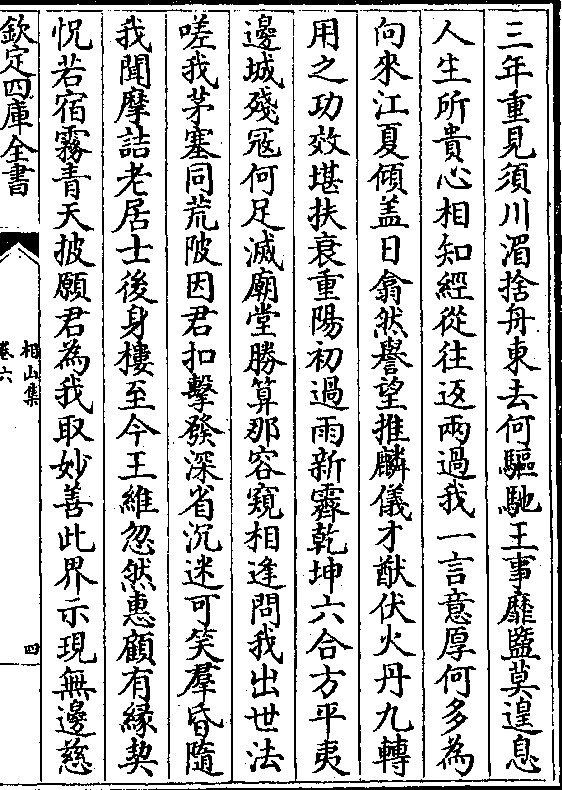 三年重見須川湄捨舟東去何驅馳王事靡盬莫遑息
人生所貴心相知經從往返兩過我一言意厚何多為
向來江夏傾盖日翕然譽望推麟儀才猷伏火丹九轉
用之功效堪扶衰重陽初過雨新霽乾坤六合方平夷
邊城殘冦何足滅廟堂勝算那容窺相逢問我出世法
嗟我茅塞同荒陂因君扣擊發深省沉迷可笑羣昏隨
我聞摩詰老居士後身棲至今王維忽然惠顧有緣契
怳若宿霧青天披願君為我取妙善此界示現無邊慈
欽定四庫全書
相山集
卷六
四